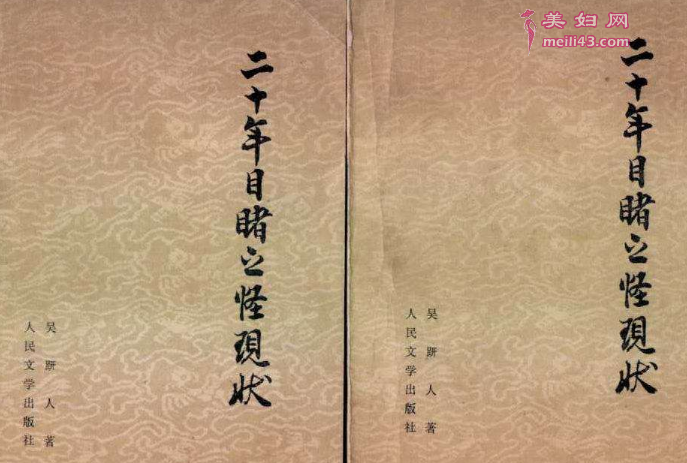 二十年目睹之怪現状
吴趼人著
人民文学出版社
美妇网
meili43.com
二十年目睹之怪現状
吴趼人著
人民文学出版社